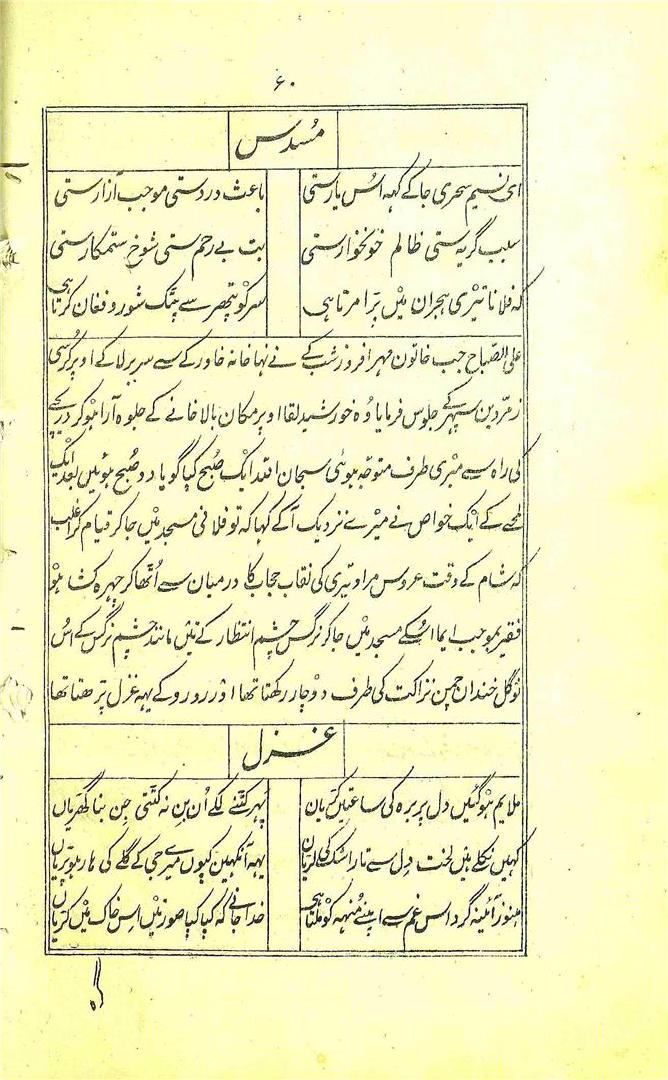 ۶۰
مُسدس
ای نسیم سحری جا کے کہہ اُس یارستی باعث دردستی موجب آزارستی
سبب گریہ ستی ظالم خونخوارستی بت بے رحم ستی شوخ ستمکارستی
کہ فلانا تیری ہجران میں پَڑا مرتا ہی سر کو پتھر سے پٹک شور و فغان کرتا ہی
علی الصّباح جب خاتون مہر افروز شب کے نے نہانخانہ خاور کے سے سر برلا کے اوپر کُرسی
زمرّدین سپہر کے جلوس فرمایا وُہ خورشید لقا اوپر مکان بالاخانے کے جلوہ آرا ہو کر دریچے
کی راہ سے میری طرف متوجّہ ہوئی سبحان اللہ ایک صُبح کیا گویا دو صُبح ہوئیں بعد ایک
لمحے کے ایک خواص نے میرے نزدیک آ کے کہا کہ تو فلانی مسجد میں جا کر قیام کر اغلب
کہ شام کے وقت عروس مراد تیری کی نقاب حجاب کا درمیان سے اُٹھا کر چہرہ کشا ہو
فقیر بموجب ایما اُسکے مسجد میں جا کر نرگس چشم انتظار کے تئیں مانند چشم نرگس کے اُس
نوگل خندان چمن نزاکت کی طرف دوچار رکھتا تھا اور رو رو کے یہہ غزل پڑھتا تھا
غزل
ملایم ہو گئیں دل پر برہ کی ساعتیں کڑیان پہر کٹنے لگے اُن بن نہ کٹتی جن بنا گھڑیاں
کہیں نکلے ہیں لخت دِل سے تار اشک کی لڑیان یہہ آنکھیں کیوں میرے جی کے گلے کی ہار ہو پڑیاں
ہنوز آئینہ گرد اس غم سے اپنے مُنہہ کو ملتا ہی خدا جانے کہ کیا کیا صورتیں اس خاک میں گڑیاں